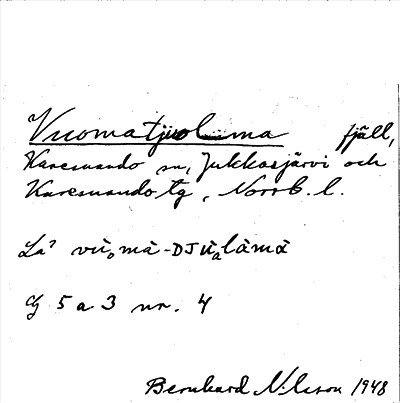 Vuomatjuolma fjäll,
Karesuando sn, Jukkasjärvi och
Karesuando tg, Norrb. l.
La? vu̇ₒmȧ-DJU̇ₐlȧmȧ
Cf 5 a 3 nr. 4
Bernhard Nilsson 1948